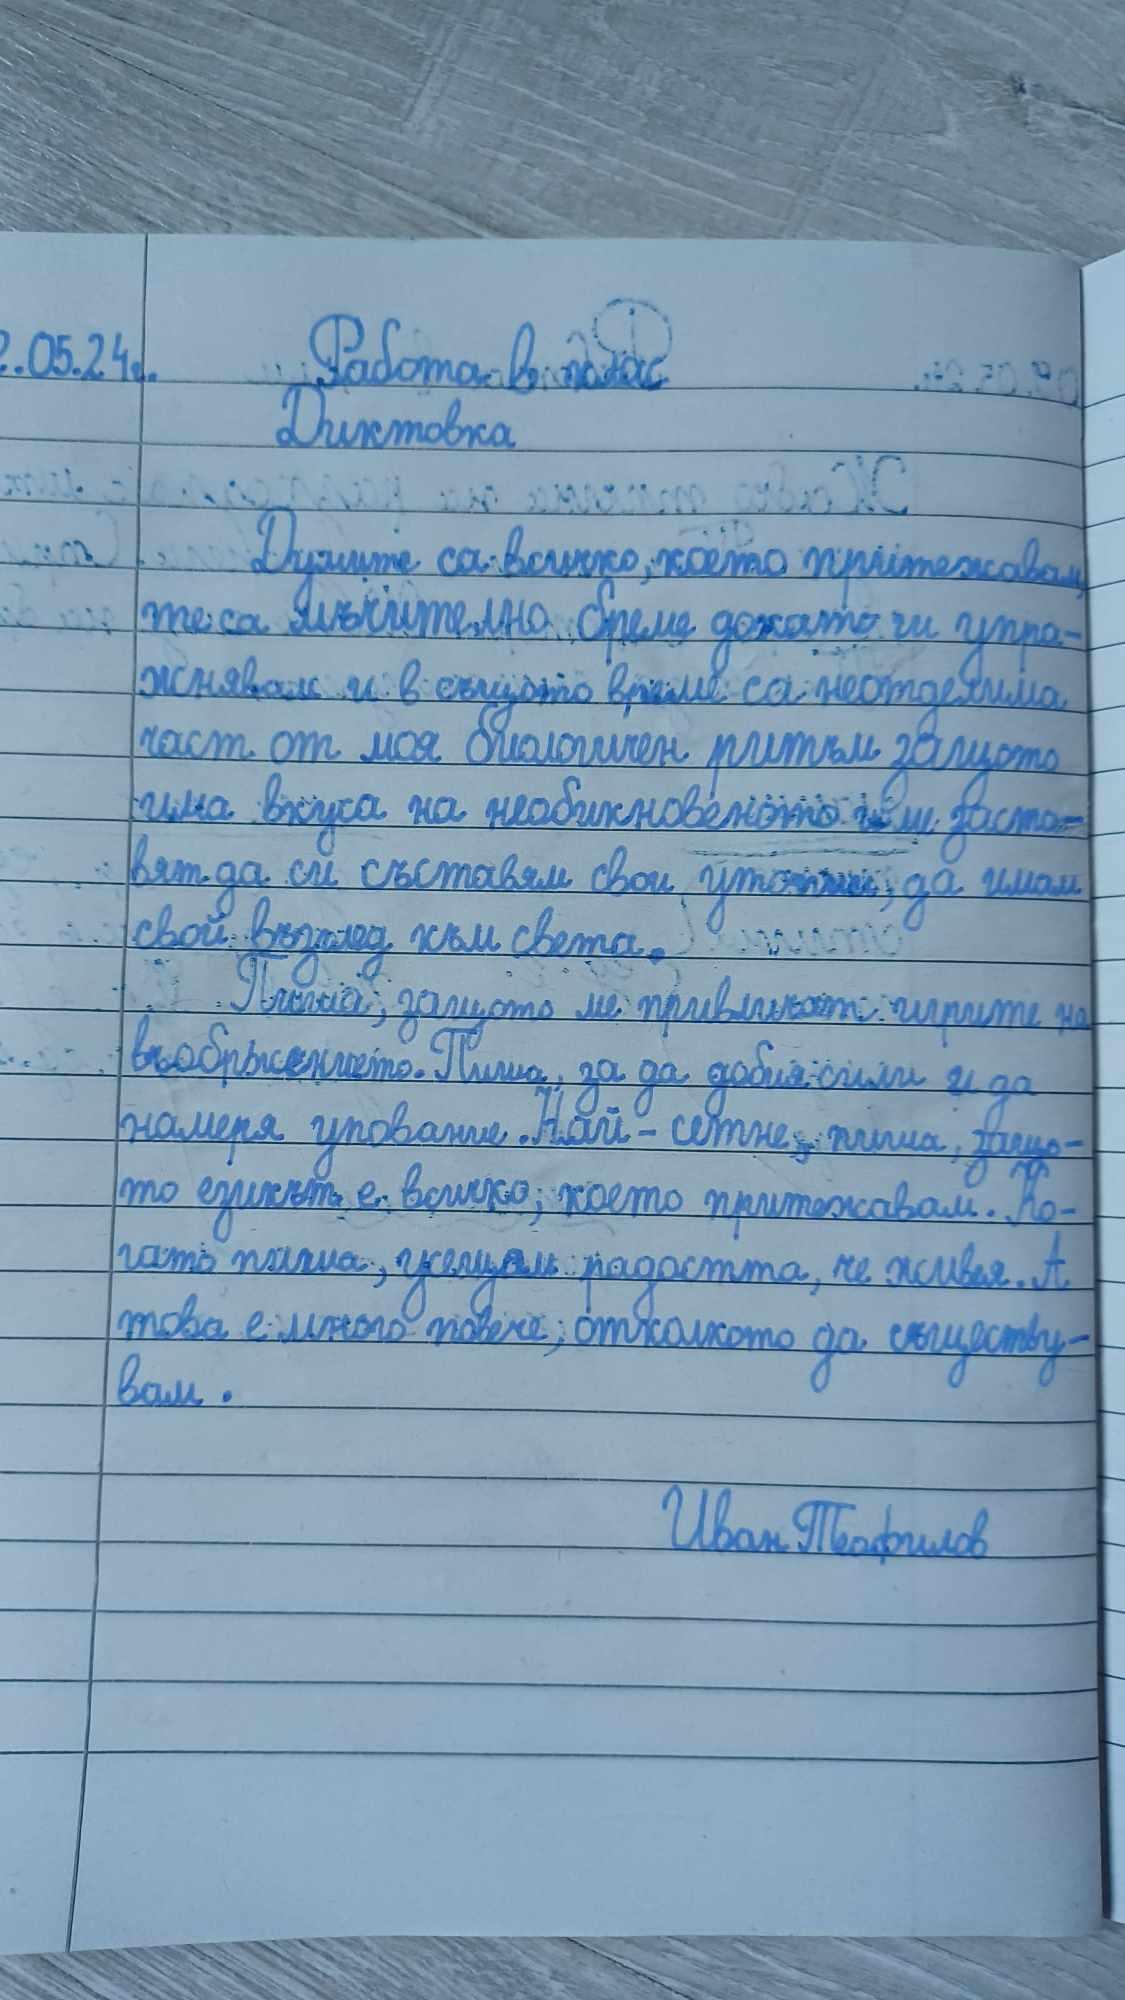 2.05.24г. Работа в клас
Диктовка
Думите са всичко, което притежавам,
те са мъчително бреме докато ги упра-
жнявам и в същото време са неотделима
част от моя биологичен ритъм защото
има вкуса на необикновеното и ме заста-
вят да си съставям свои утопии, да имам
свой възглед към света.
Пиша, защото ме привличат игрите на
въображението. Пиша, за да добия сили и да
намеря упование. Най-сетне, пиша, защо-
то езикът е всичко, което притежавам. Ко-
гато пиша, усещам радостта, че живея. А
това е много повече, отколкото да съществу-
вам.
Иван Теофилов